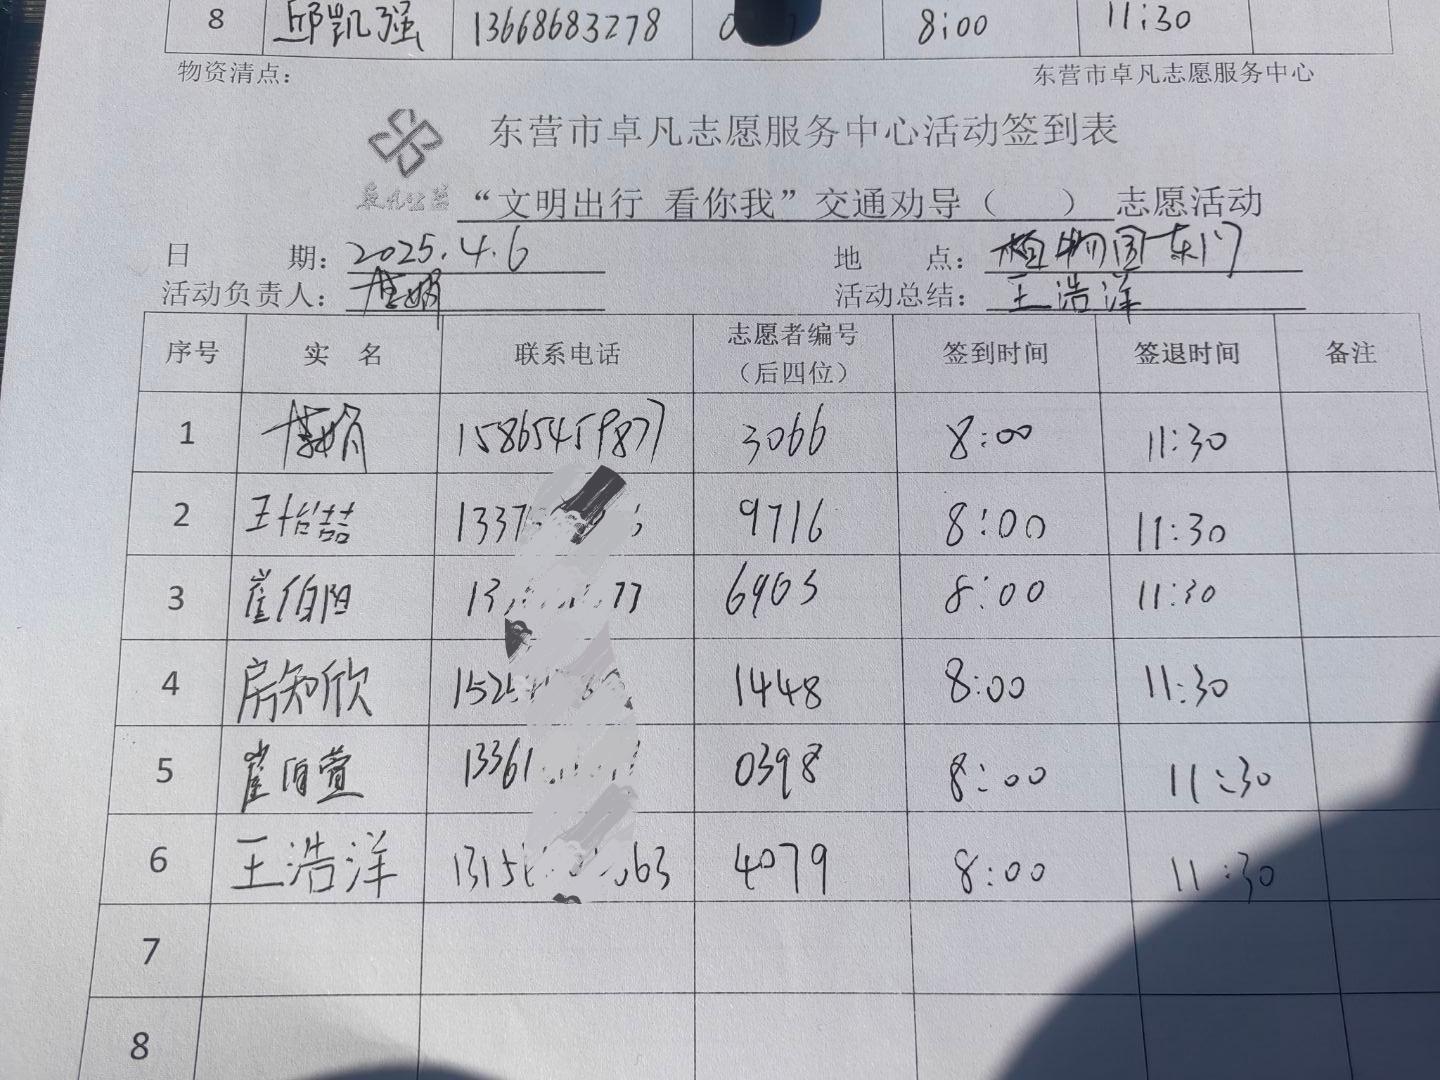 8 邱凯强 13668683278 8:00 11:30
物资清点： 东营市卓凡志愿服务中心
东营市卓凡志愿服务中心活动签到表
卓凡公益 “文明出行 看你我”交通劝导（ ）志愿活动
日 期：2025.4.6 地 点：植物园东门
活动负责人： 活动总结：王浩洋
序号 实 名 联系电话 志愿者编号（后四位） 签到时间 签退时间 备注
1 15865459877 3066 8:00 11:30
2 王怡喆 1337 9716 8:00 11:30
3 崔伯阳 13 77 6903 8:00 11:30
4 房知欣 1525 1448 8:00 11:30
5 崔伯萱 13361 0398 8:00 11:30
6 王浩洋 1315 63 4079 8:00 11:30
7
8